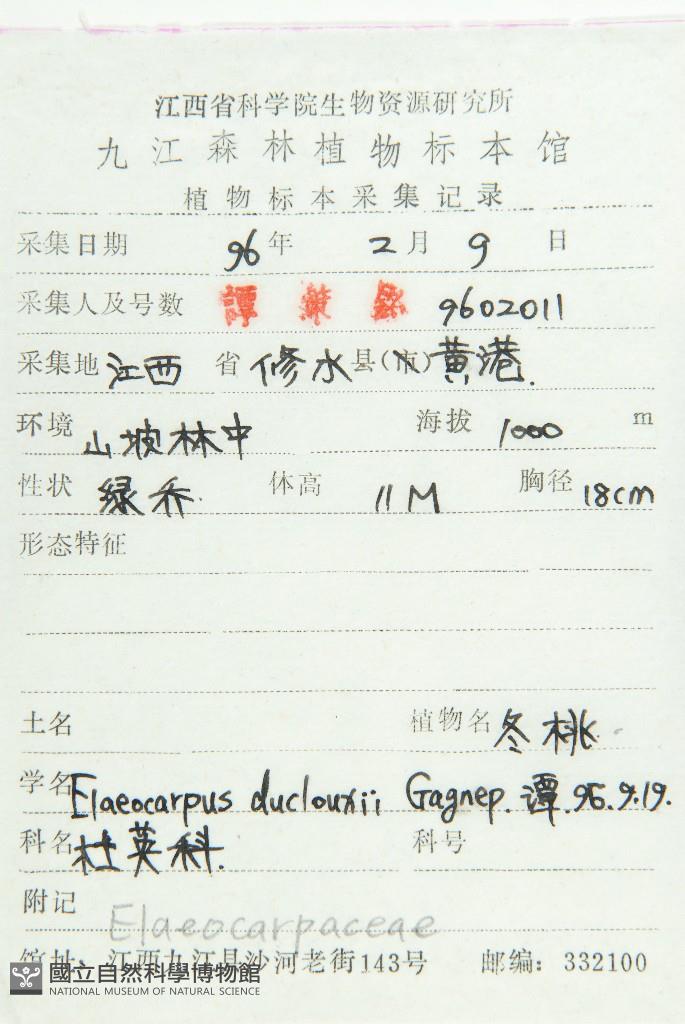 江西省科学院生物资源研究所
九江森林植物标本馆
植物标本采集记录
采集日期 96年 2月 9日
采集人及号数 譚策銘 9602011
采集地 江西省 修水县(市)黄港.
环境 山坡林中 海拔 1000 m
性状 绿乔. 体高 11M 胸径 18cm
形态特征
土名 植物名 冬桃
学名 Elaeocarpus duclouxii Gagnep. 谭.96.9.19.
科名 杜英科. 科号
附记 Elaeocarpaceae
馆址: 江西九江县沙河老街143号 邮编: 332100
國立自然科學博物館
NATIONAL MUSEUM OF NATURAL SCIENCE